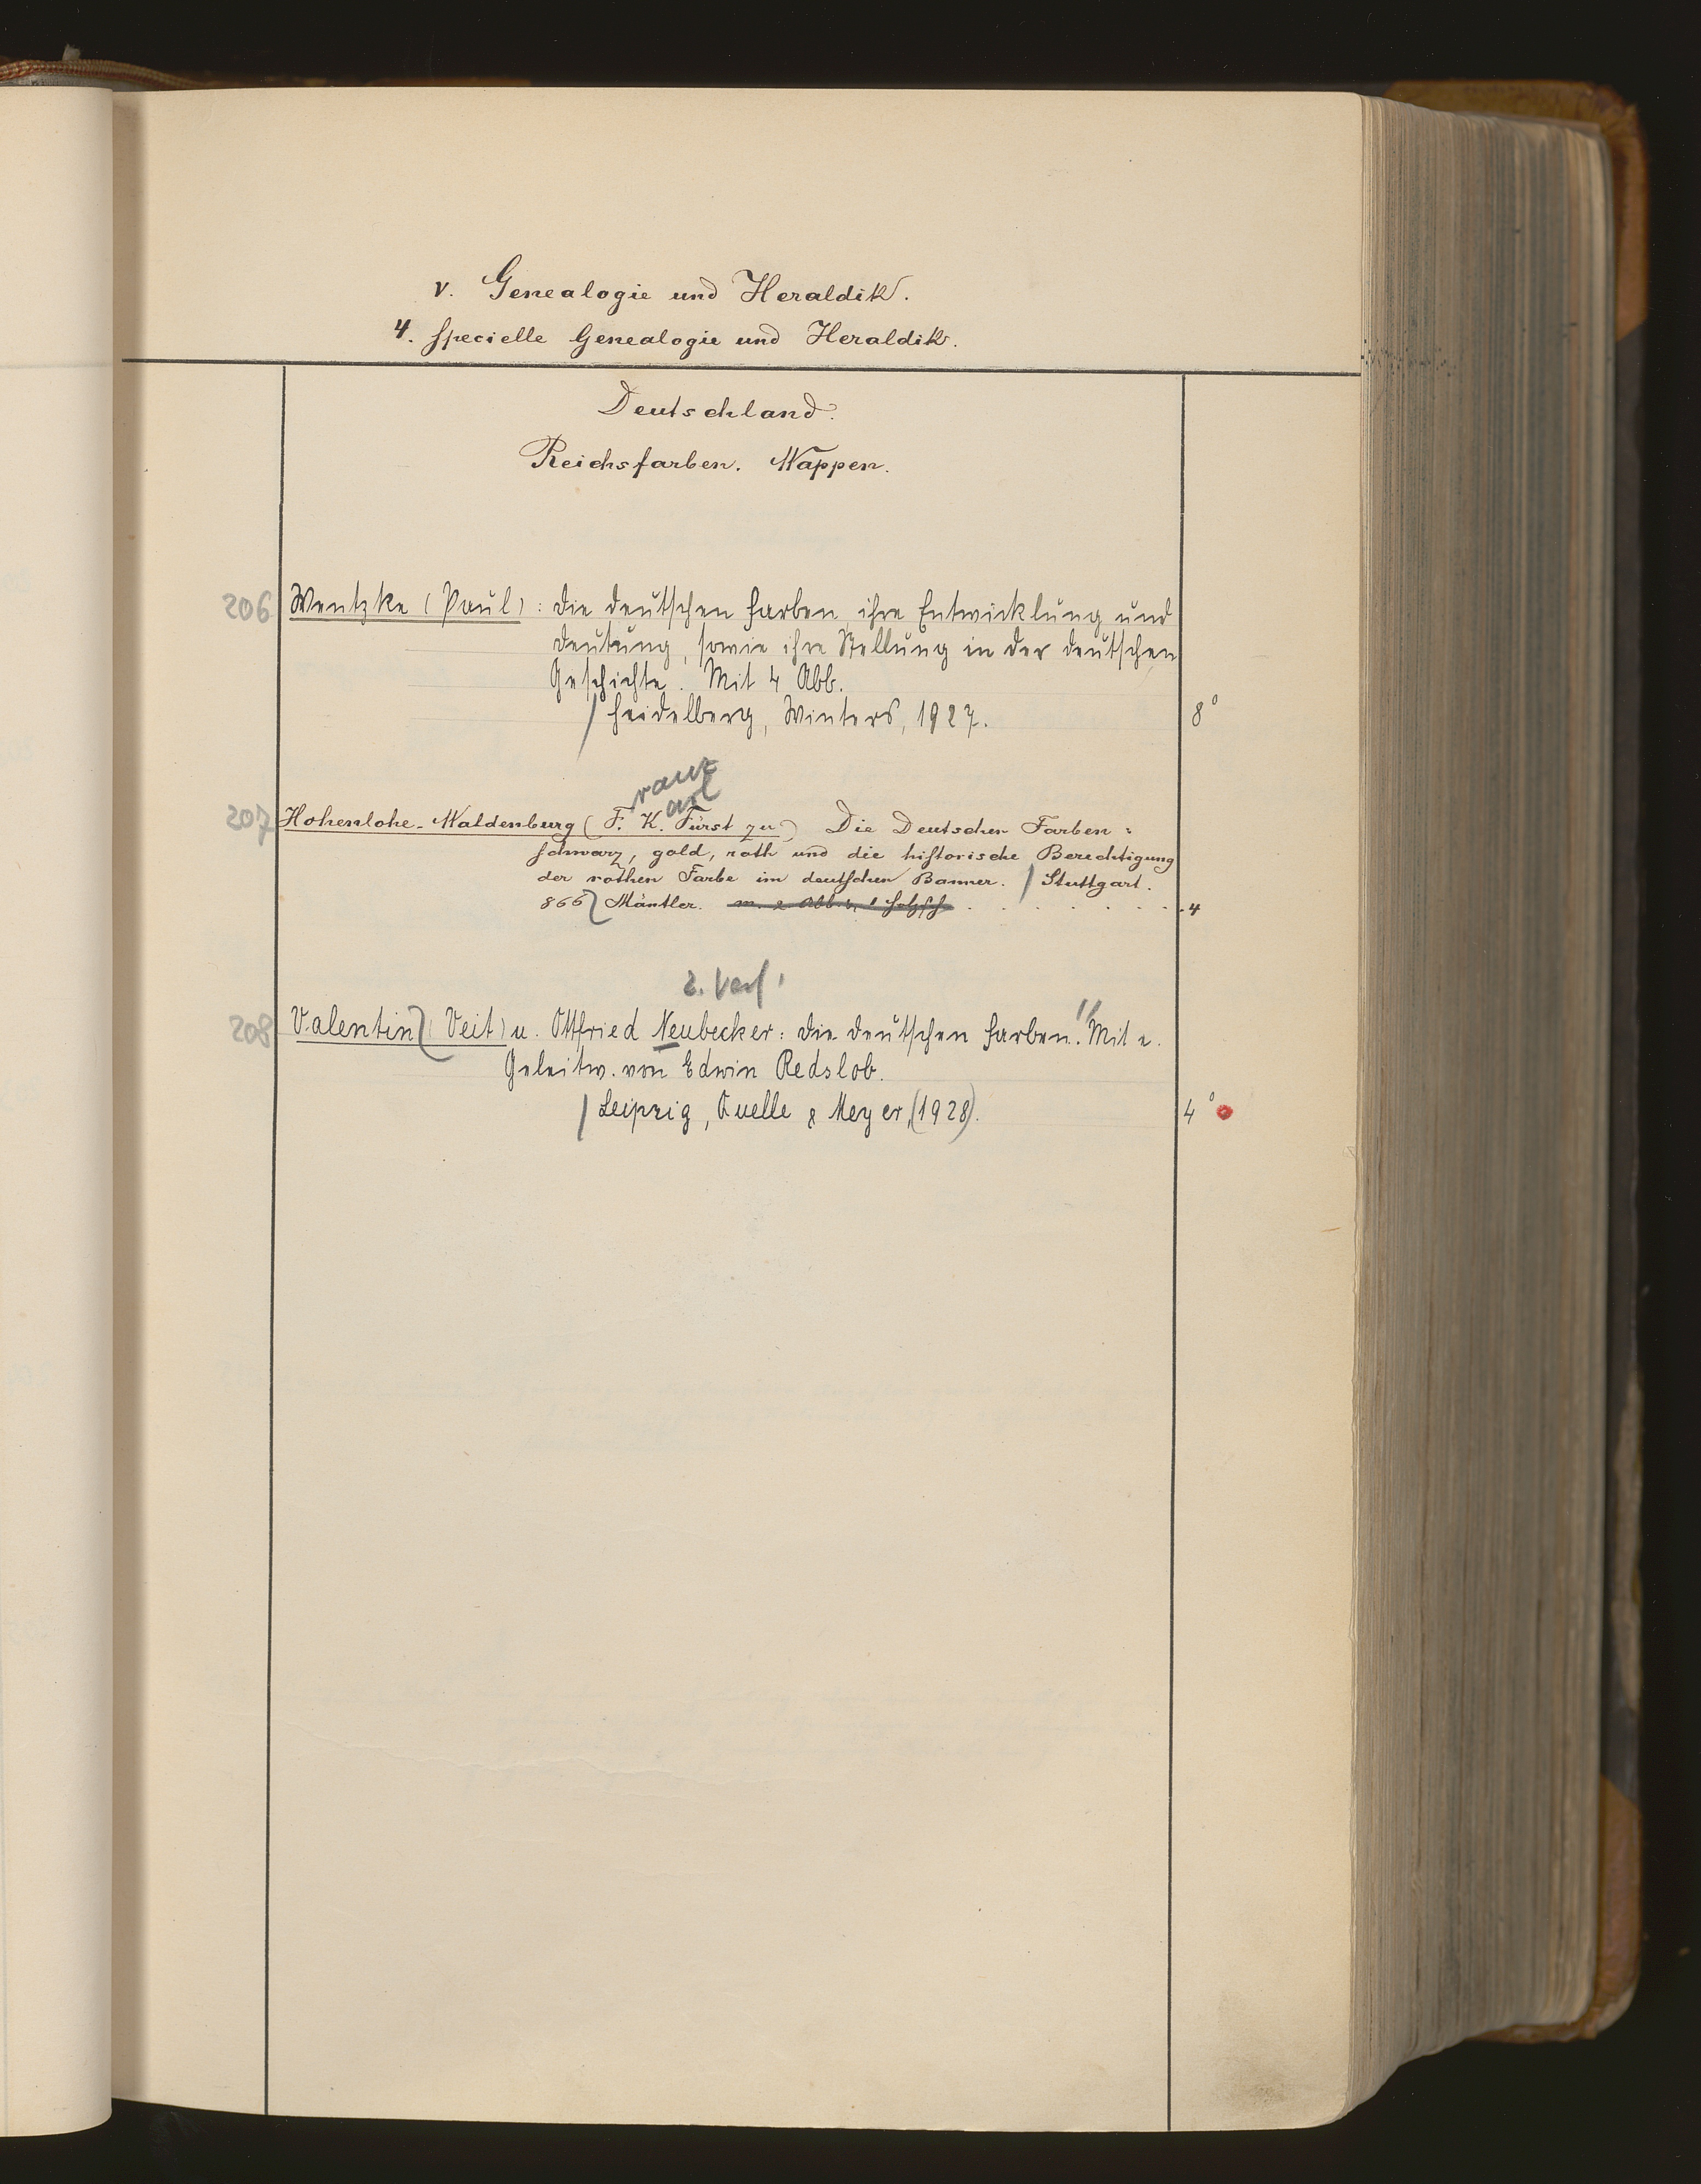 V. Genealogie und Heraldik.
4. Specielle Genealogie und Heraldik.
Deutschland.
Reichsfarben. Wappen.
206 Wentzke (Paul): Die deutschen Farben, ihre Entwicklung und
Deutung, sowie ihre Stellung in der deutschen
Geschichte. Mit 4 Abb.
/ Heidelberg, Winters, 1927. 8°
ranz
arl
207 Hohenlohe-Waldenburg (F. K. Fürst zu) Die Deutschen Farben:
schwarz, gold, roth und die historische Berechtigung
der rothen Farbe im deutschen Banner. / Stuttgart.
866 Mäntler. m. 2 Abb. u. 1 . . . . . . . 4
2. Verf!
208 Valentin (Veit) u. Ottfried Neubecker: Die deutschen Farben." Mit e.
Geleitw. von Edwin Redslob.
/ Leipzig, Quelle & Meyer, (1928). 4°